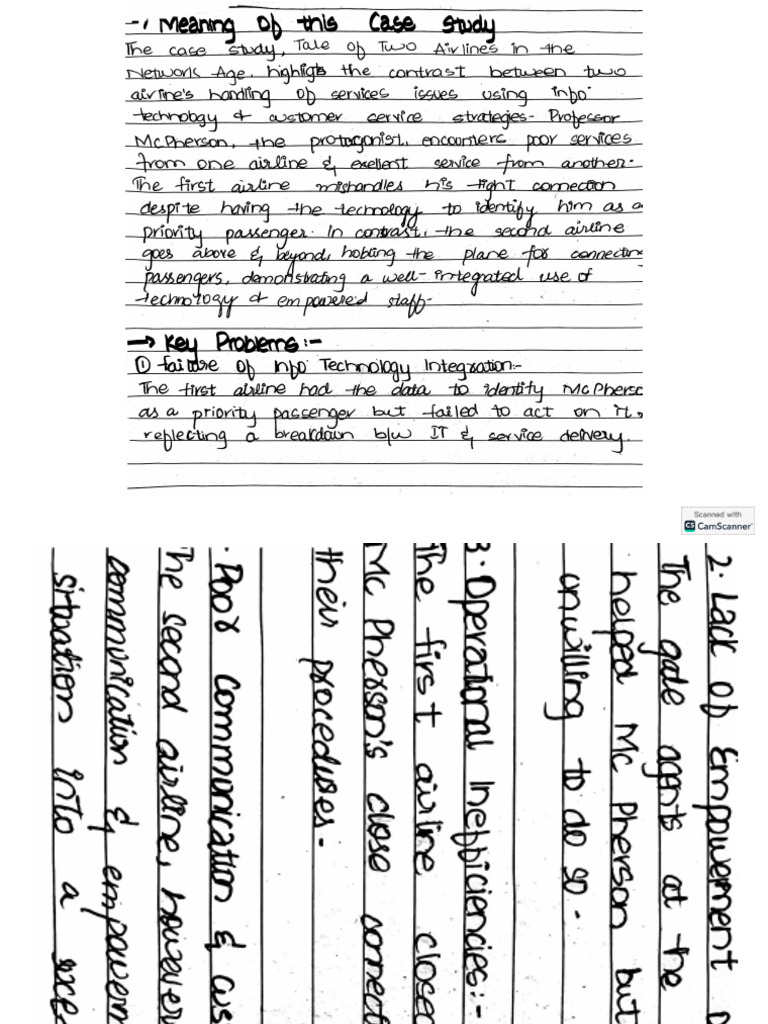 -, Meaning Of this Case Study
The case study, Tale of Two Airlines in the
Network Age. highligts the contrast between two
airline's handling of services issues using info
technology & customer service strategies- Professor
McPherson, the protagonist, encounters poor services
from one airline & exellent service from another-
The first airline mishandles his tight connection
despite having the technology to identify him as a
priority passenger. In contrast, the second airline
goes above & beyond, holding the plane for connectin
passengers, demonstrating a well-integrated use of
technology & empowered staff-
→ Key Problems:-
① failure of Info Technology Integration:-
The first airline had the data to identify McPherso
as a priority passenger but failed to act on it,
reflecting a breakdown b/w IT & service delivery.
Scanned with
CS CamScanner
2. Lack of Empowerment
The gate agents at the
helped Mc Pherson but
unwilling to do so-
3. Operational Inefficiencies:-
The first airline closed
Mc Pherson's close connect
their procedures-
. Poor Communication & cus
The second airline, however
communication & empowerm
situation into a exce